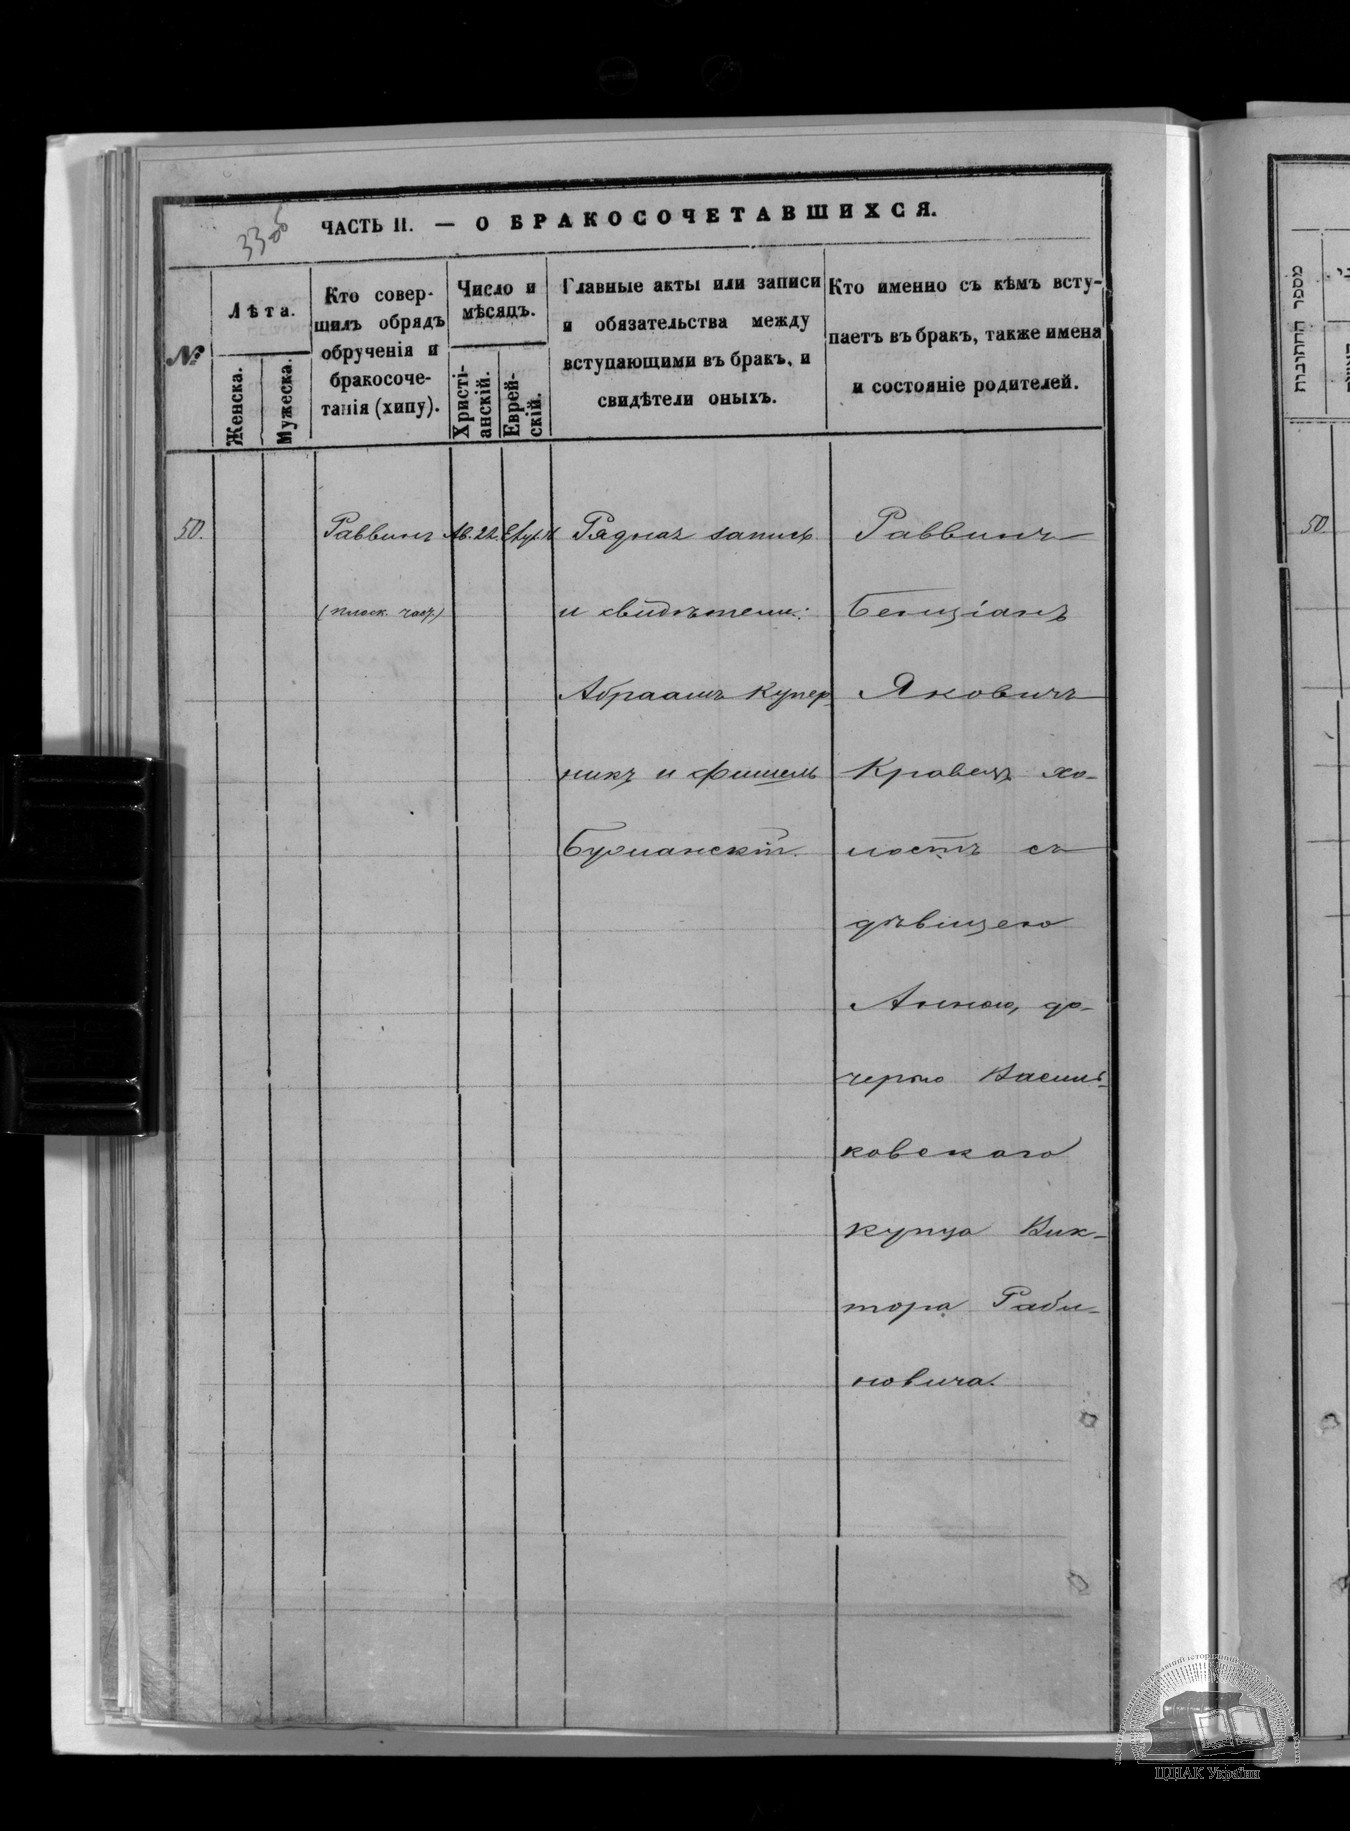 33об
ЧАСТЬ II. — О БРАКОСОЧЕТАВШИХСЯ.
№
Лѣта.
Женска.
Мужеска.
Кто совер-
шилъ обрядъ
обрученія и
бракосоче-
танія (хипу).
Число и
мѣсяцъ.
Христі-
анскій.
Еврей-
скій.
Главные акты или записи
и обязательства между
вступающими въ бракъ, и
свидѣтели оныхъ.
Кто именно съ кѣмъ всту-
паетъ въ бракъ, также имена
и состояніе родителей.
50.
Раввинъ
Ав. 22.
Рядная запись
и свидѣтели:
Абраамъ Купер-
никъ и Фишель
Раввинъ
Бенціанъ
Яковичъ
Кравецъ хо-
лостъ съ
дѣвицею
Анною, до-
черью Василь-
ковскаго
купца Вик-
тора Раби-
новича.
מספר החתונות
50
ЦДІАК України